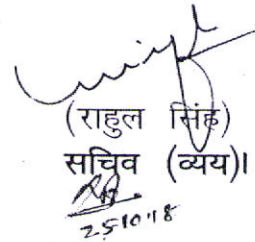 (राहुल सिंह)
सचिव (व्यय)।
25.10.18